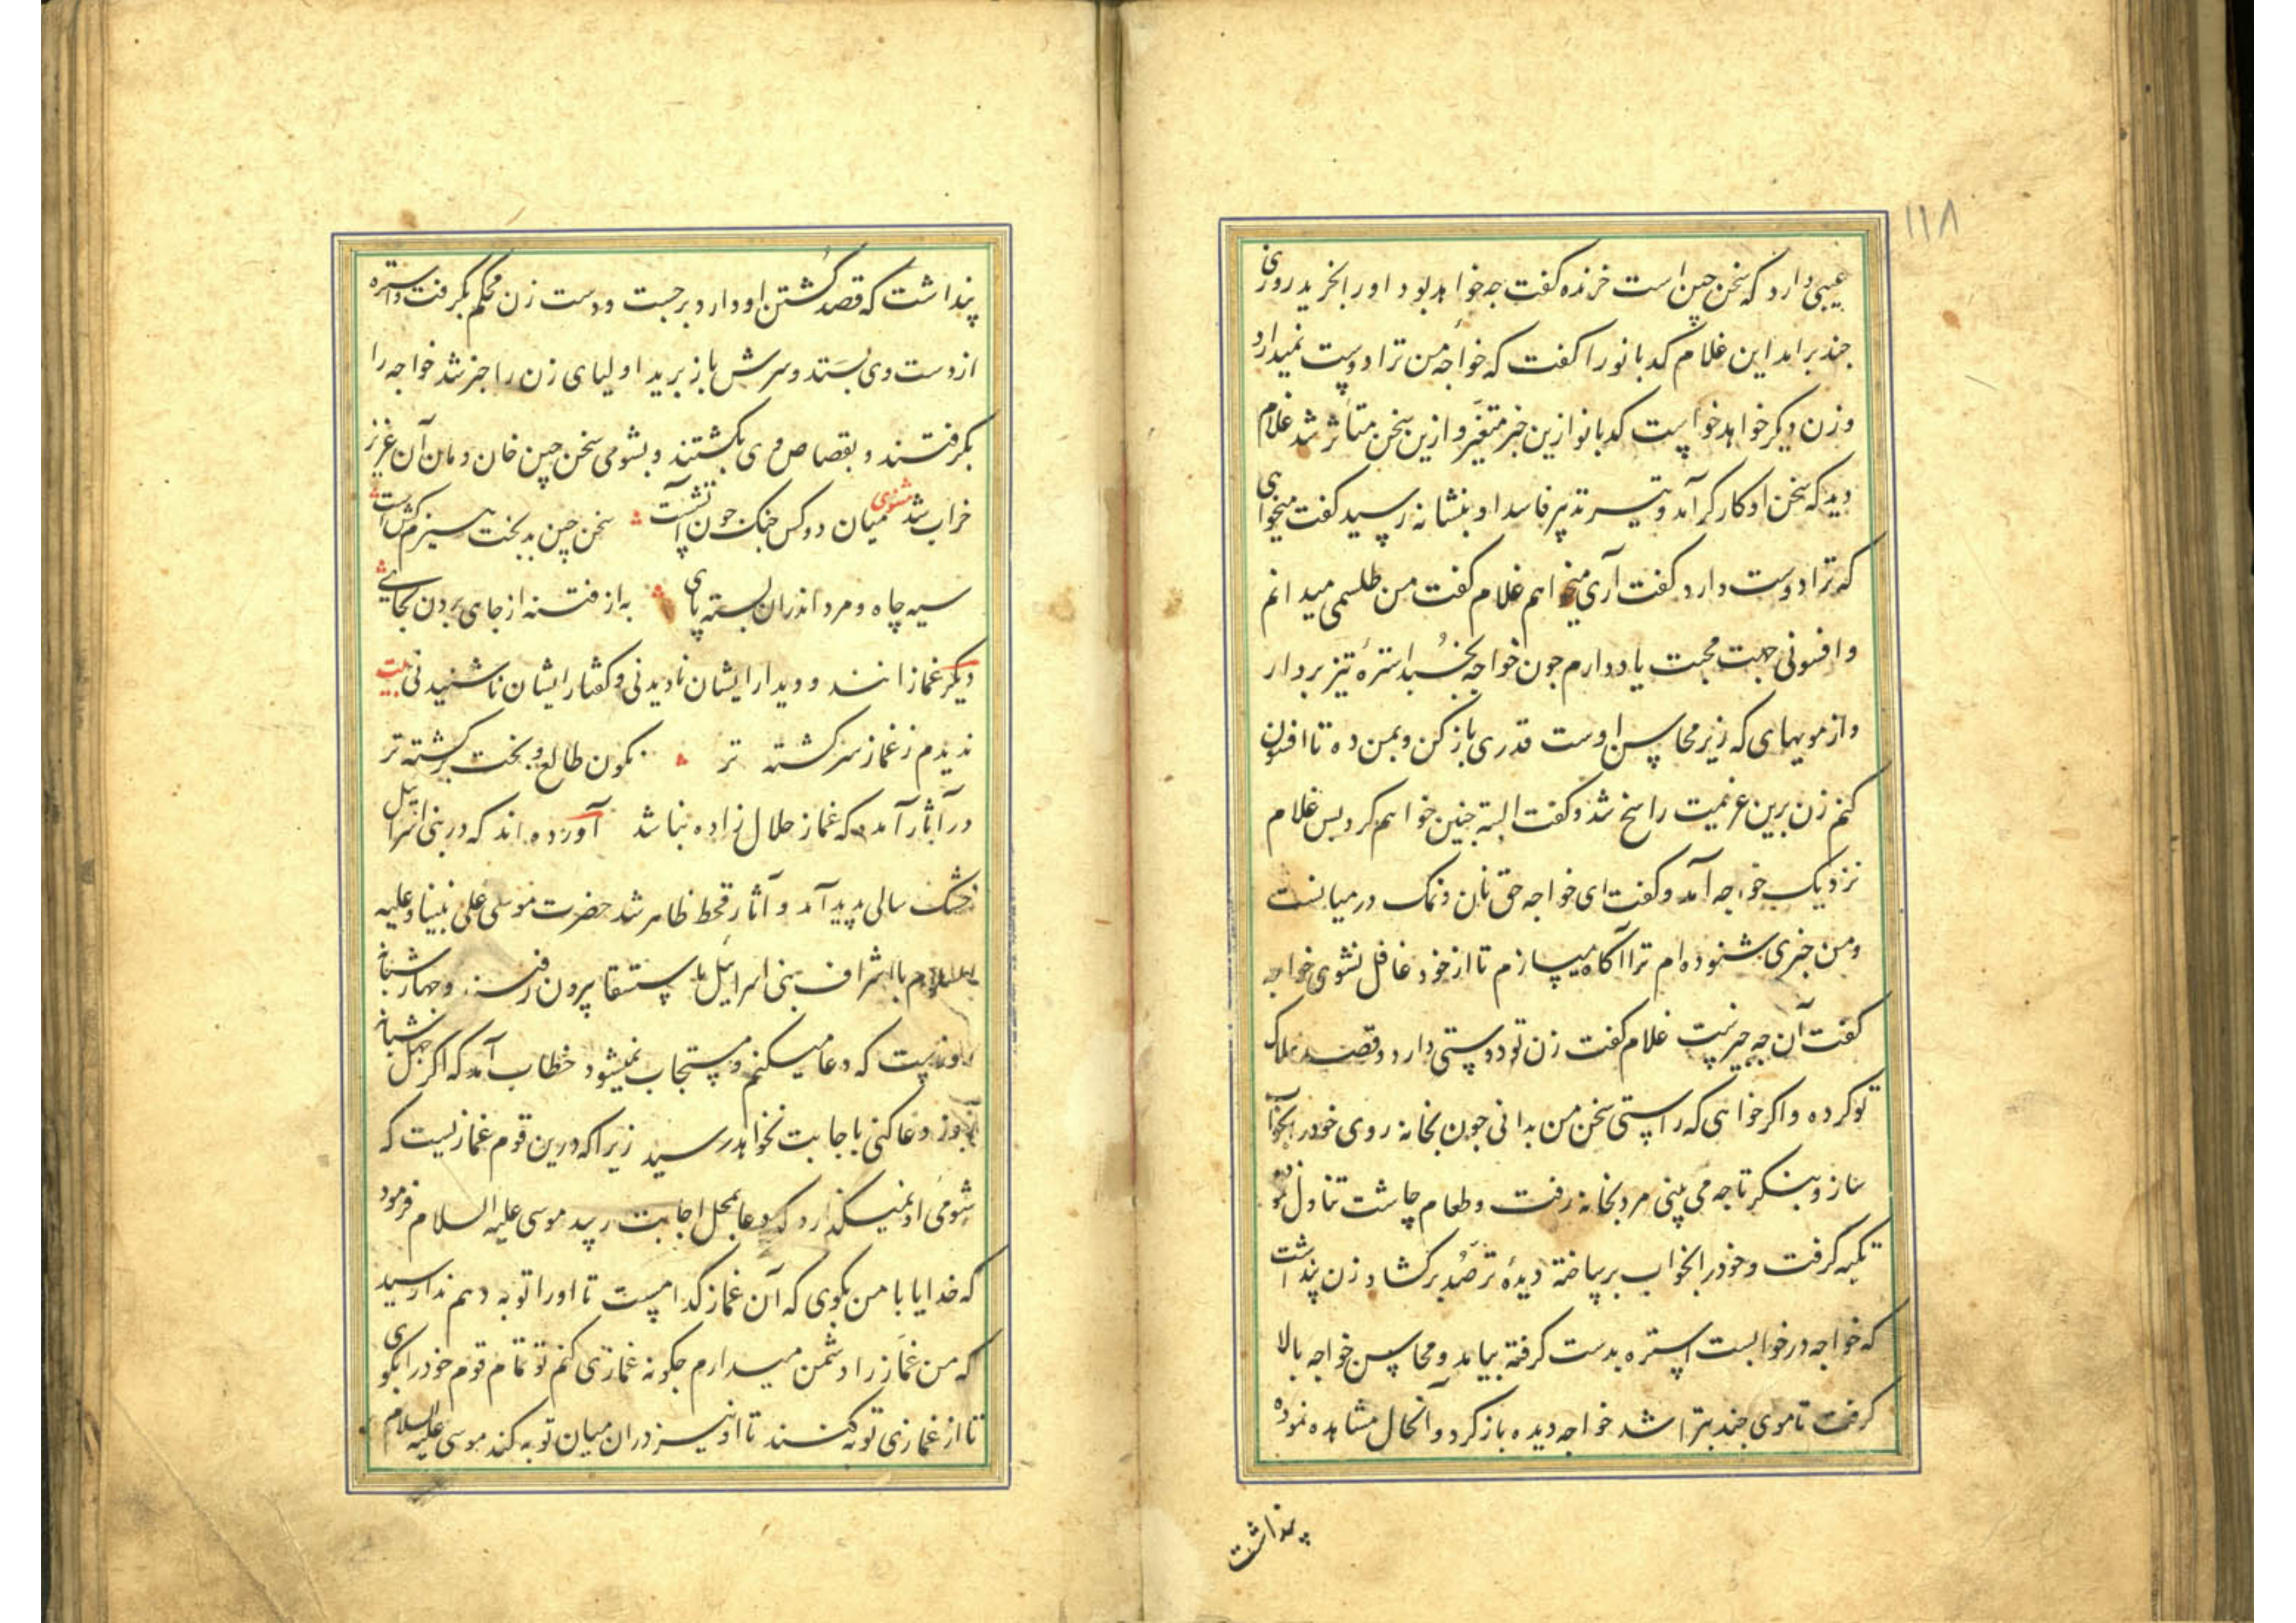 ۱۱۸
عیبی دارد که سخن چین است خرنده کفت چه خواهد بود اورا بخرید روزی
چند برامد این غلام کدبانو را کفت که خواجه من ترا دوست نمیدارد
و زن دیکر خواهد خواست کدبانو ازین خبر متغیر و ازین سخن متاثر شد غلام
دید که سخن او کارکر آمد و تیر تدبیر فاسد او بنشانه رسید کفت میخواهی
که ترا دوست دارد کفت آری میخواهم غلام کفت من طلسمی میدانم
و افسونی جهت محبت یاد دارم چون خواجه بخسبد استرهٔ تیز بردار
و از مویهای که زیر محاسن اوست قدری باز کن و بمن ده تا افسون
کنم زن برین عزیمت راسخ شد و کفت البته چنین خواهم کرد پس غلام
نزدیک خواجه آمد و کفت ای خواجه حق نان و نمک در میانست
و من خبری شنوده ام ترا آکاه میسازم تا از خود غافل نشوی خواجه
کفت آن چه خبرست غلام کفت زن تو دوستی دارد و قصد هلاک
تو کرده و اکر خواهی که راستی سخن من بدانی چون بخانه روی خود را بخواب
ساز و بنکر تا چه می بینی مرد بخانه رفت و طعام چاشت تناول نمود
تکیه کرفت و خود را بخواب برساخته دیدهٔ ترصد برکشاد زن پنداشت
که خواجه در خوابست استره بدست کرفته بیامد و محاسن خواجه بالا
کرفت تا موی چند بتراشد خواجه دیده باز کرد و آنحال مشاهده نموده
پنداشت
پنداشت که قصد کشتن او دارد برجست و دست زن محکم بکرفت و استره
از دست وی بستد و سرش باز برید اولیای زن را خبر شد خواجه را
بکرفتند و بقصاص وی بکشتند و بشومی سخن چین خان و مان آن عزیز
خراب شد مثنوی میان دو کس جنک چون آتشست سخن چین بدبخت هیزم کش است
سیه چاه و مرد اندران بسته پای به از فتنه از جای بردن بجای
دیکر غمازانند و دیدار ایشان نادیدنی و کفتار ایشان ناشنیدنی بیت
ندیدم ز غماز سرکشته تر نکون طالع و بخت برکشته تر
در آثار آمده که غماز حلال زاده نباشد آورده اند که در بنی اسرائیل
خشک سالی پدید آمد و آثار قحط ظاهر شد حضرت موسی علی نبینا و علیه
السلام با اشراف بنی اسرائیل باستسقا بیرون رفتند و چهار شبانه
روزست که دعا میکنم و مستجاب نمیشود خطاب آمد که اکر چهل شبانه
روز دعا کنی باجابت نخواهد رسید زیرا که درین قوم غمازیست که
شومی او نمیکذارد که دعا بمحل اجابت رسد موسی علیه السلام فرمود
که خدایا با من بکوی که آن غماز کدامست تا اورا توبه دهم ندا رسید
که من غماز را دشمن میدارم چکونه غمازی کنم تو تمام قوم خود را بکوی
تا از غمازی توبه کنند تا او نیز دران میان توبه کند موسی علیه السلام